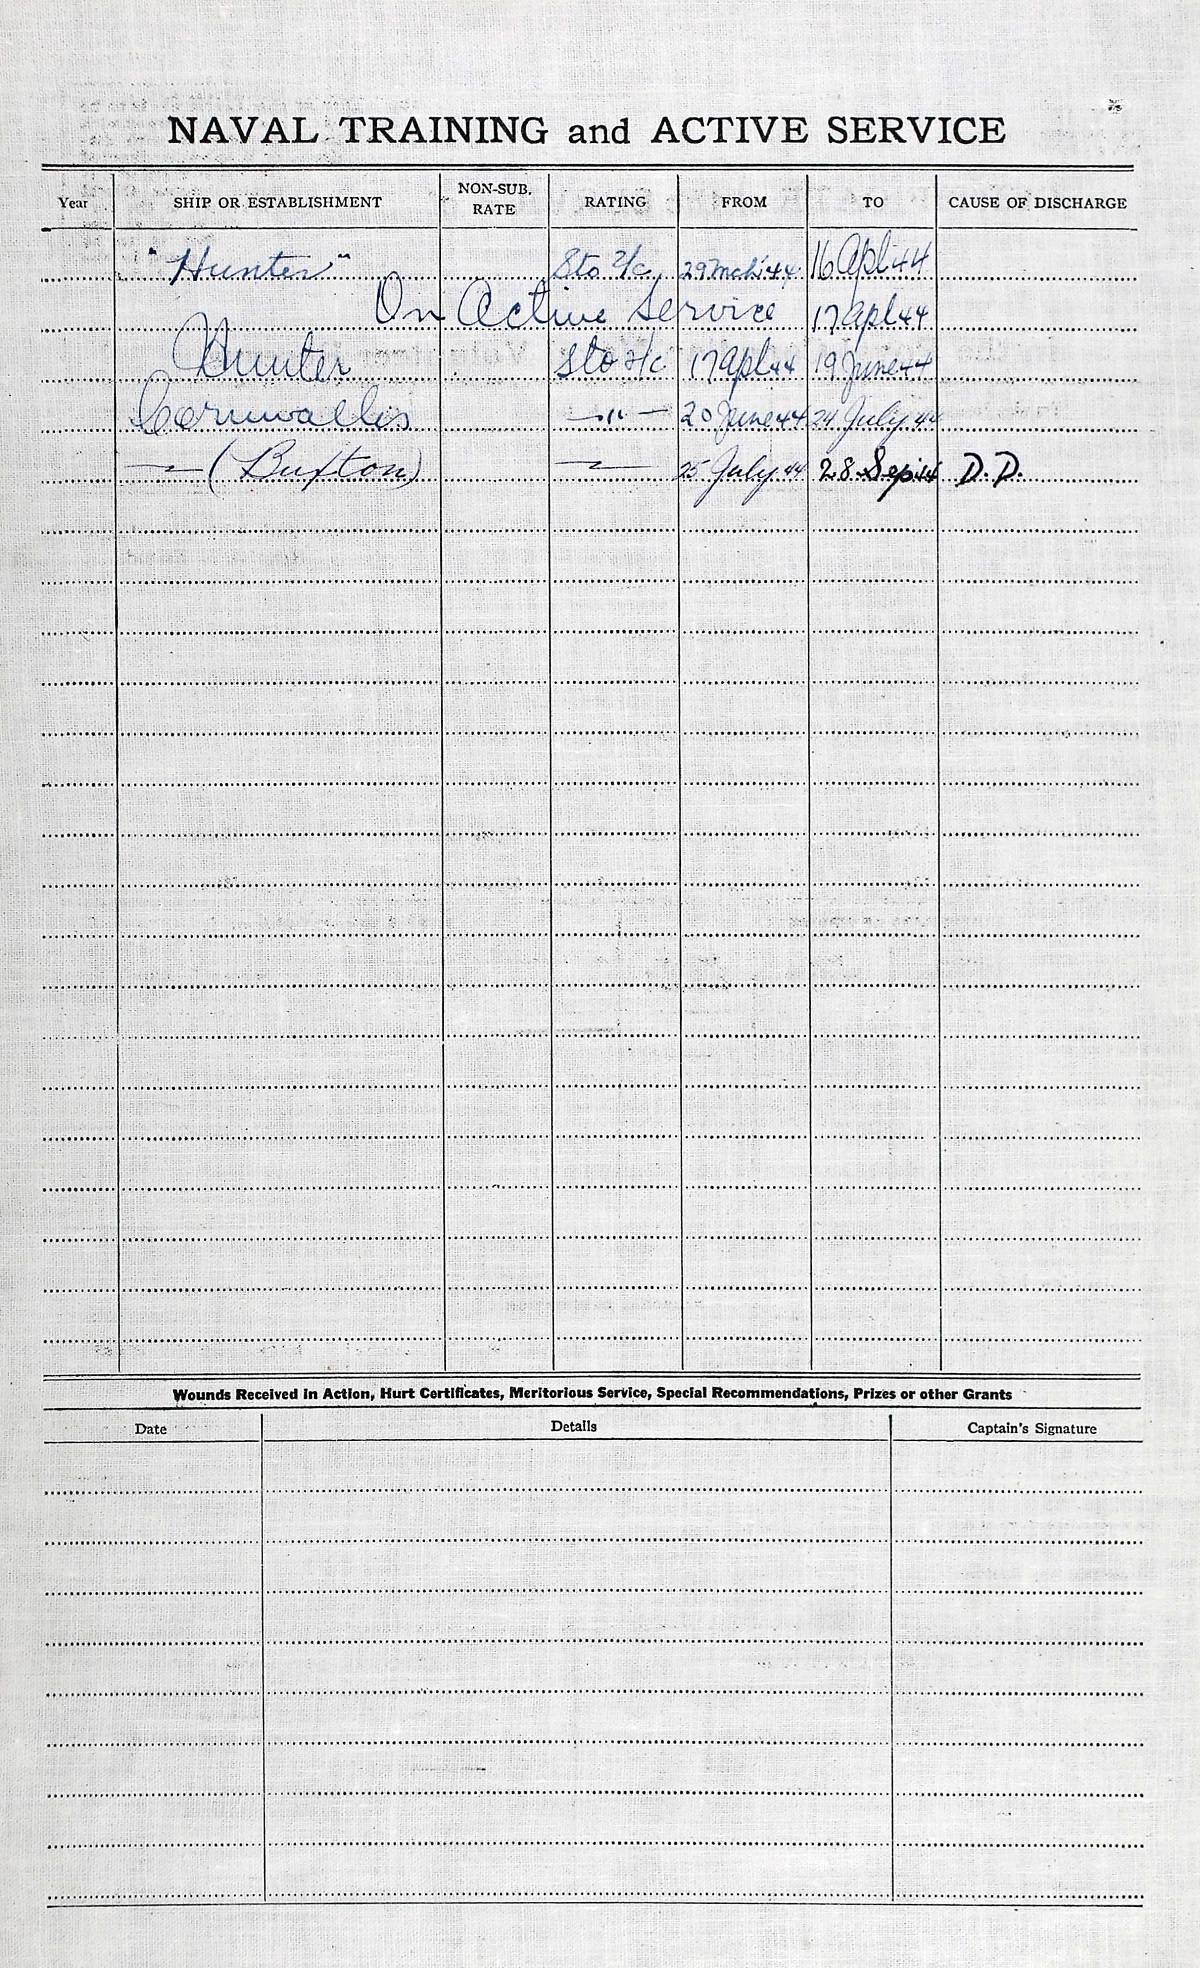 NAVAL TRAINING and ACTIVE SERVICE
Year SHIP OR ESTABLISHMENT NON-SUB. RATE RATING FROM TO CAUSE OF DISCHARGE
"Hunter" Sto 2/c. 29 Mch 44 16 Apl 44
On Active Service 17 Apl 44
Hunter Sto 2/c 17 Apl 44 19 June 44
Cornwallis —"— 20 June 44 24 July 44
— (Buxton) — 25 July 44 28 Sep 44 D.D.
Wounds Received in Action, Hurt Certificates, Meritorious Service, Special Recommendations, Prizes or other Grants
Date Details Captain's Signature